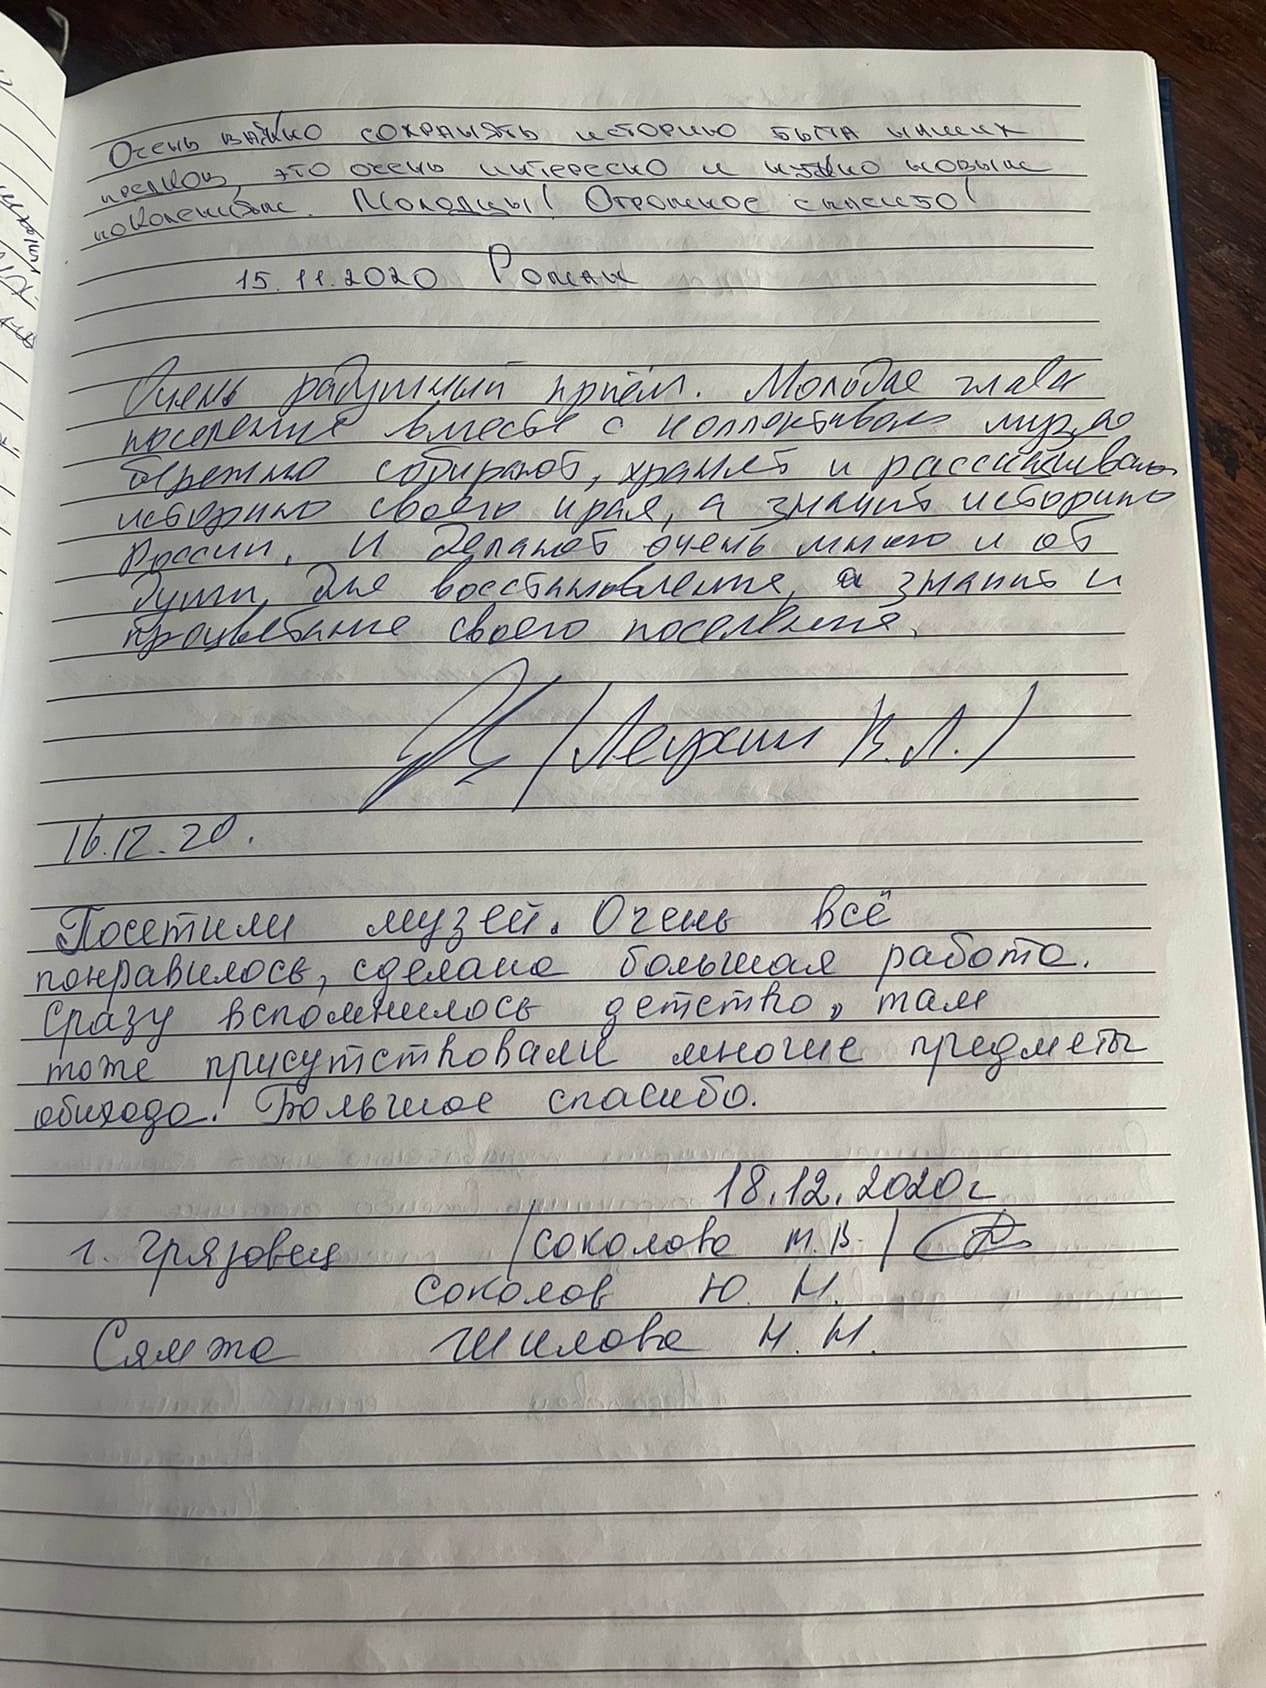 Очень важно сохранять историю быта наших
предков, это очень интересно и нужно новым
поколениям. Молодцы! Огромное спасибо!
15.11.2020 Роман
Очень радушный приём. Молодые глава
поселения вместе с коллективом музея
бережно собирают, хранят и рассказывают
историю своего края, а значит историю
России. И делают очень много и от
души, для восстановления, а значит и
процветания своего поселения.
/Леухин В.Л.)
16.12.20.
Посетили музей. Очень всё
понравилось, сделана большая работа.
Сразу вспомнилось детство, там
тоже присутствовали многие предметы
обихода. Большое спасибо.
18.12.2020г
г. Грязовец /Соколова М.В./
Соколов Ю. Н.
Сямжа Шилова Н. Н.